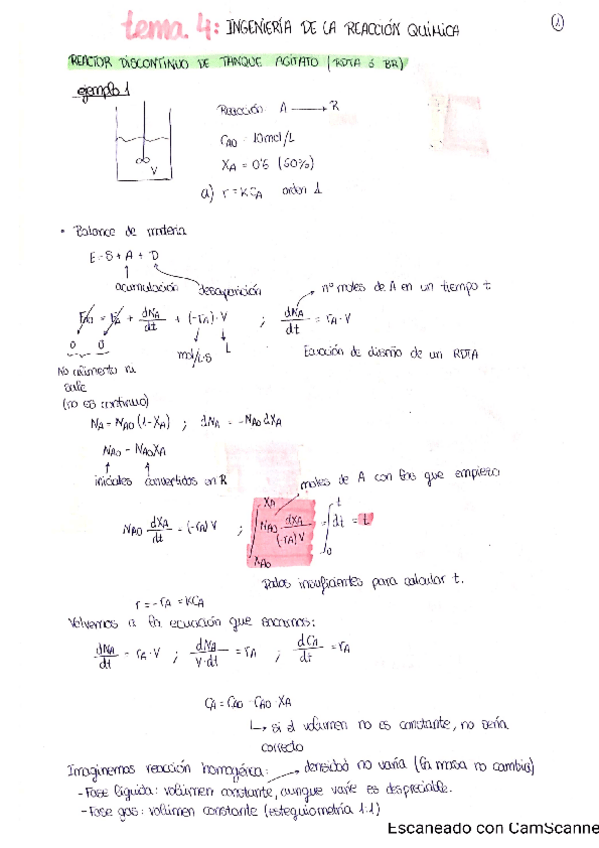 tema 4: INGENIERÍA DE LA REACCIÓN QUÍMICA
1
REACTOR DISCONTINUO DE TANQUE AGITATO (RDTA ó BR)
ejemplo 1
Reacción: A → R
CA0 = 10 mol/L
XA = 0'5 (50%)
a) r = KCA orden 1
V
• Balance de materia
E = S + A + D
acumulación
desaparición
nº moles de A en un tiempo t
FA0 = FA + dNA/dt + (-rA)·V ; dNA/dt = rA·V
0 0
mol/L·S L
Ecuación de diseño de un RDTA
No alimento ni
sale
(no es continuo)
NA = NA0 (1-XA) ; dNA = -NA0 dXA
NA0 - NA0XA
iniciales convertidos en R
moles de A con los que empiezo
NA0 dXA/dt = (-rA) V ; ∫XA0 XA NA0 · dXA/(-rA) V = ∫0 t dt = t
Datos insuficientes para calcular t.
r = -rA = KCA
Volvemos a la ecuación que
dNA/dt = rA·V ; dNA/V·dt = rA ; dCA/dt = rA
CA = CA0 - CA0·XA
↳ si el volumen no es constante, no sería
correcto
Imaginemos reacción homogénea: → densidad no varía (la masa no cambia)
- Fase líquida: volumen constante, aunque varíe es despreciable.
- Fase gas: volumen constante (estequiometría 1:1)
Escaneado con CamScanne